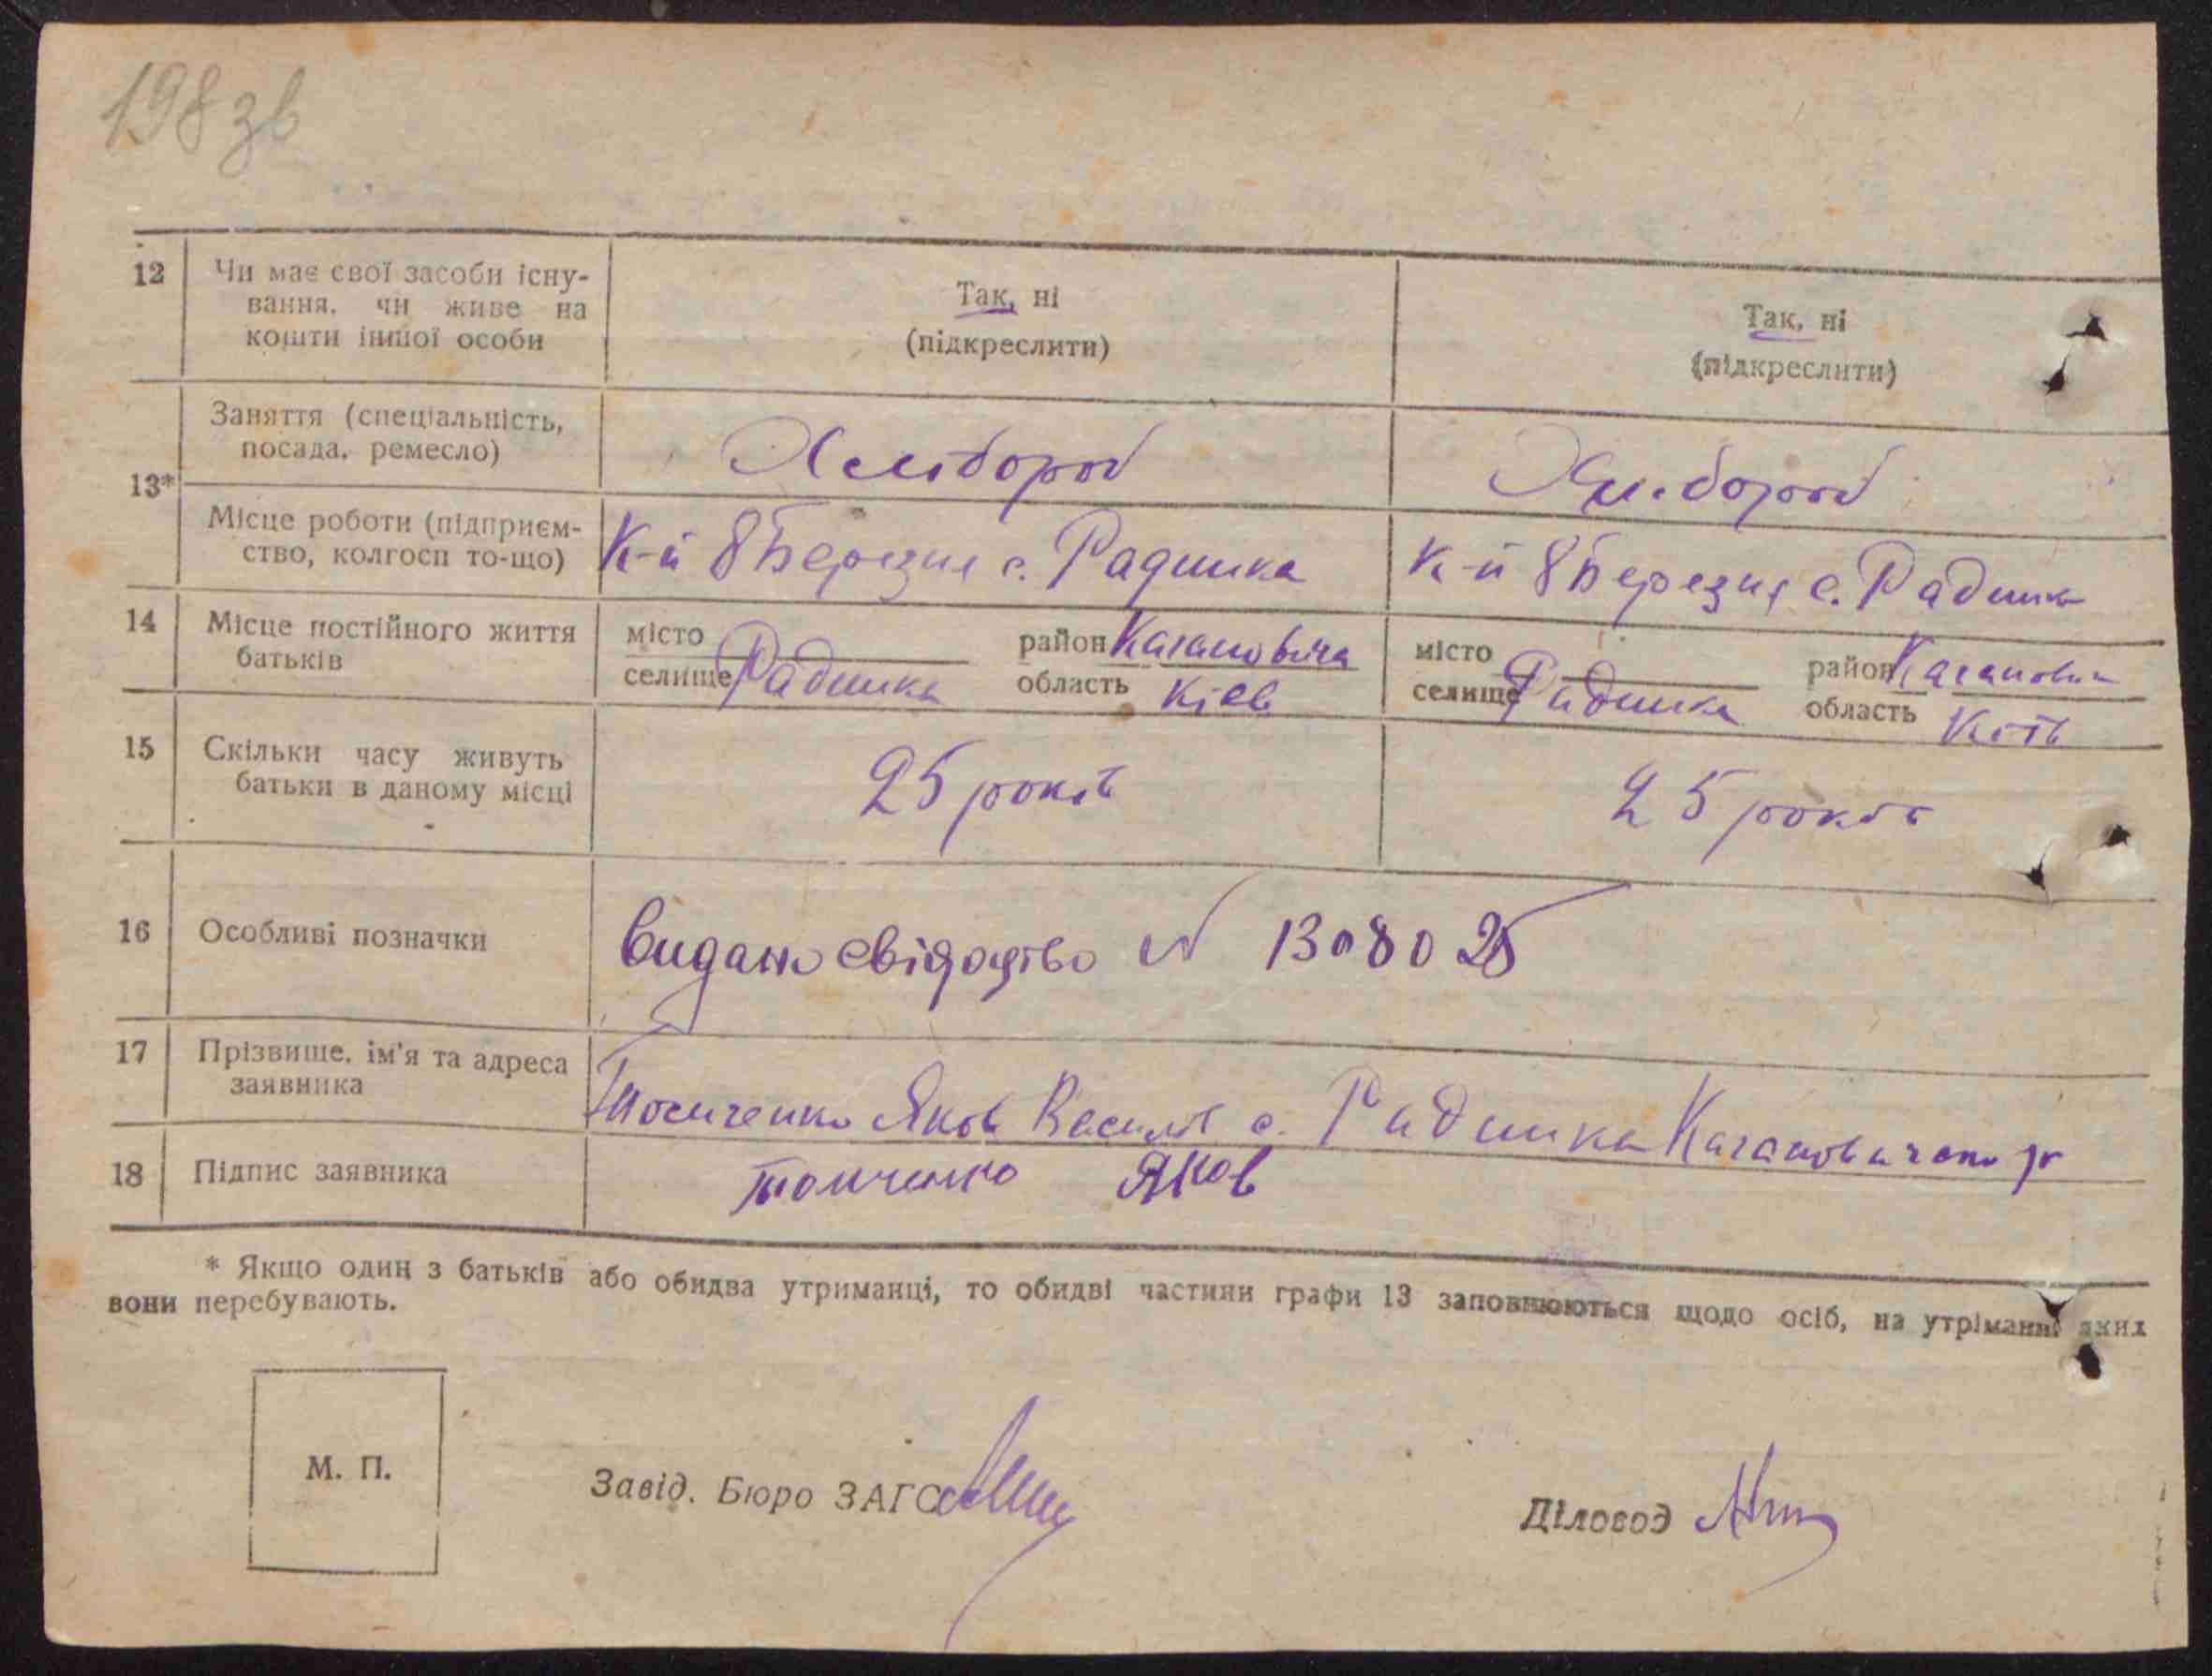 198 зв
12 Чи має свої засоби існу-
вання, чи живе на
кошти іншої особи
Так, ні
(підкреслити)
Так, ні
(підкреслити)
13*
Заняття (спеціальність,
посада, ремесло)
Хлібороб
Хлібороб
Місце роботи (підприєм-
ство, колгосп то-що)
К-п 8 Березня с. Радинка
К-п 8 Березня с. Радинка
14 Місце постійного життя
батьків
місто
селище Радинка
район Кагановича
область Київ
місто
селище Радинка
район Каганович
область Київ
15 Скільки часу живуть
батьки в даному місці
25 років
25 років
16 Особливі позначки
Видано свідоцтво N 1308025
17 Прізвище, ім'я та адреса
заявника
Яков Васил с. Радинка Кагановичсько р
18 Підпис заявника
Яков
* Якщо один з батьків або обидва утриманці, то обидві частини графи 13 заповнюються щодо осіб, на утріманні яких
вони перебувають.
М. П.
Завід. Бюро ЗАГС
Діловод